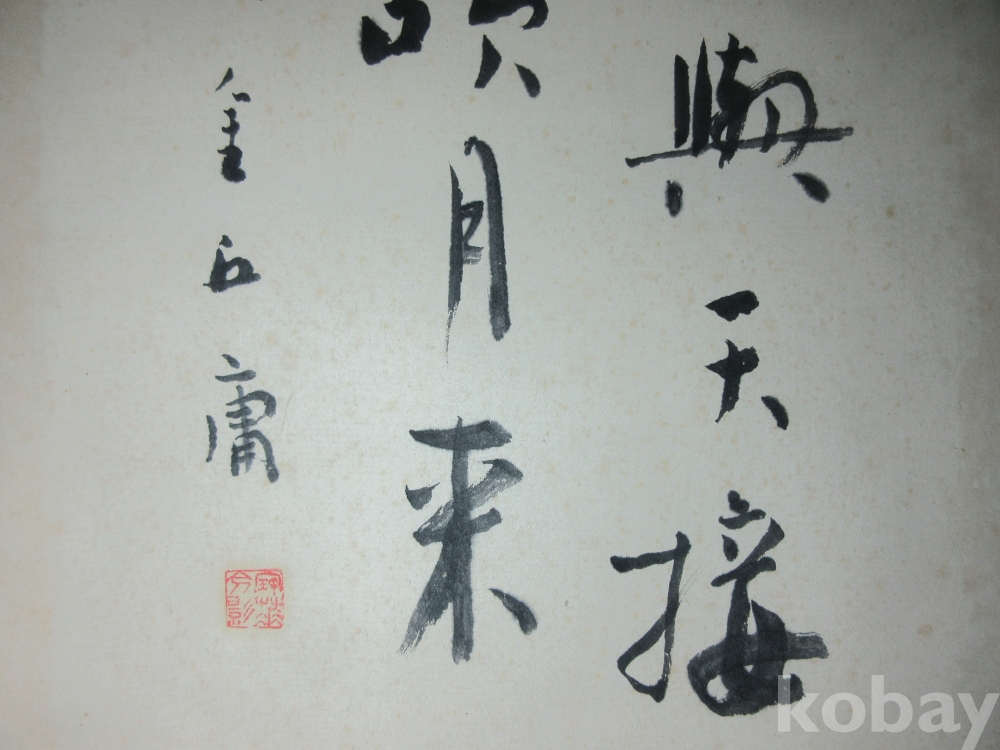 與天接
吹月来
金石庸
kobay